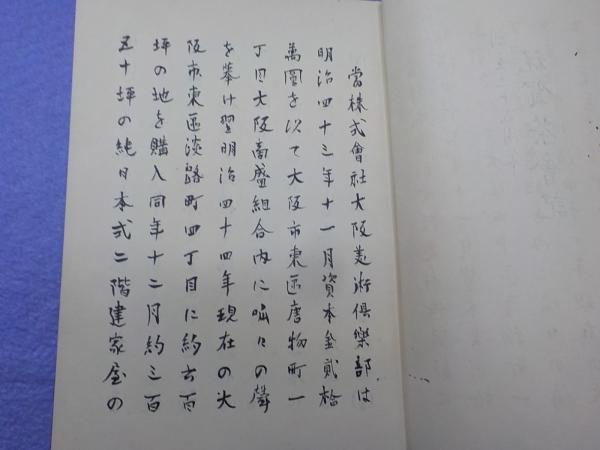 當株式會社大阪美術倶樂部は
明治四十三年十一月資本金貳拾
萬圓を以て大阪市東區唐物町一
丁目大阪商盛組合内に呱々の聲
を擧け翌明治四十四年現在の大
阪市東區淡路町四丁目に約六百
坪の地を購入同年十二月約三百
五十坪の純日本式二階建家屋の